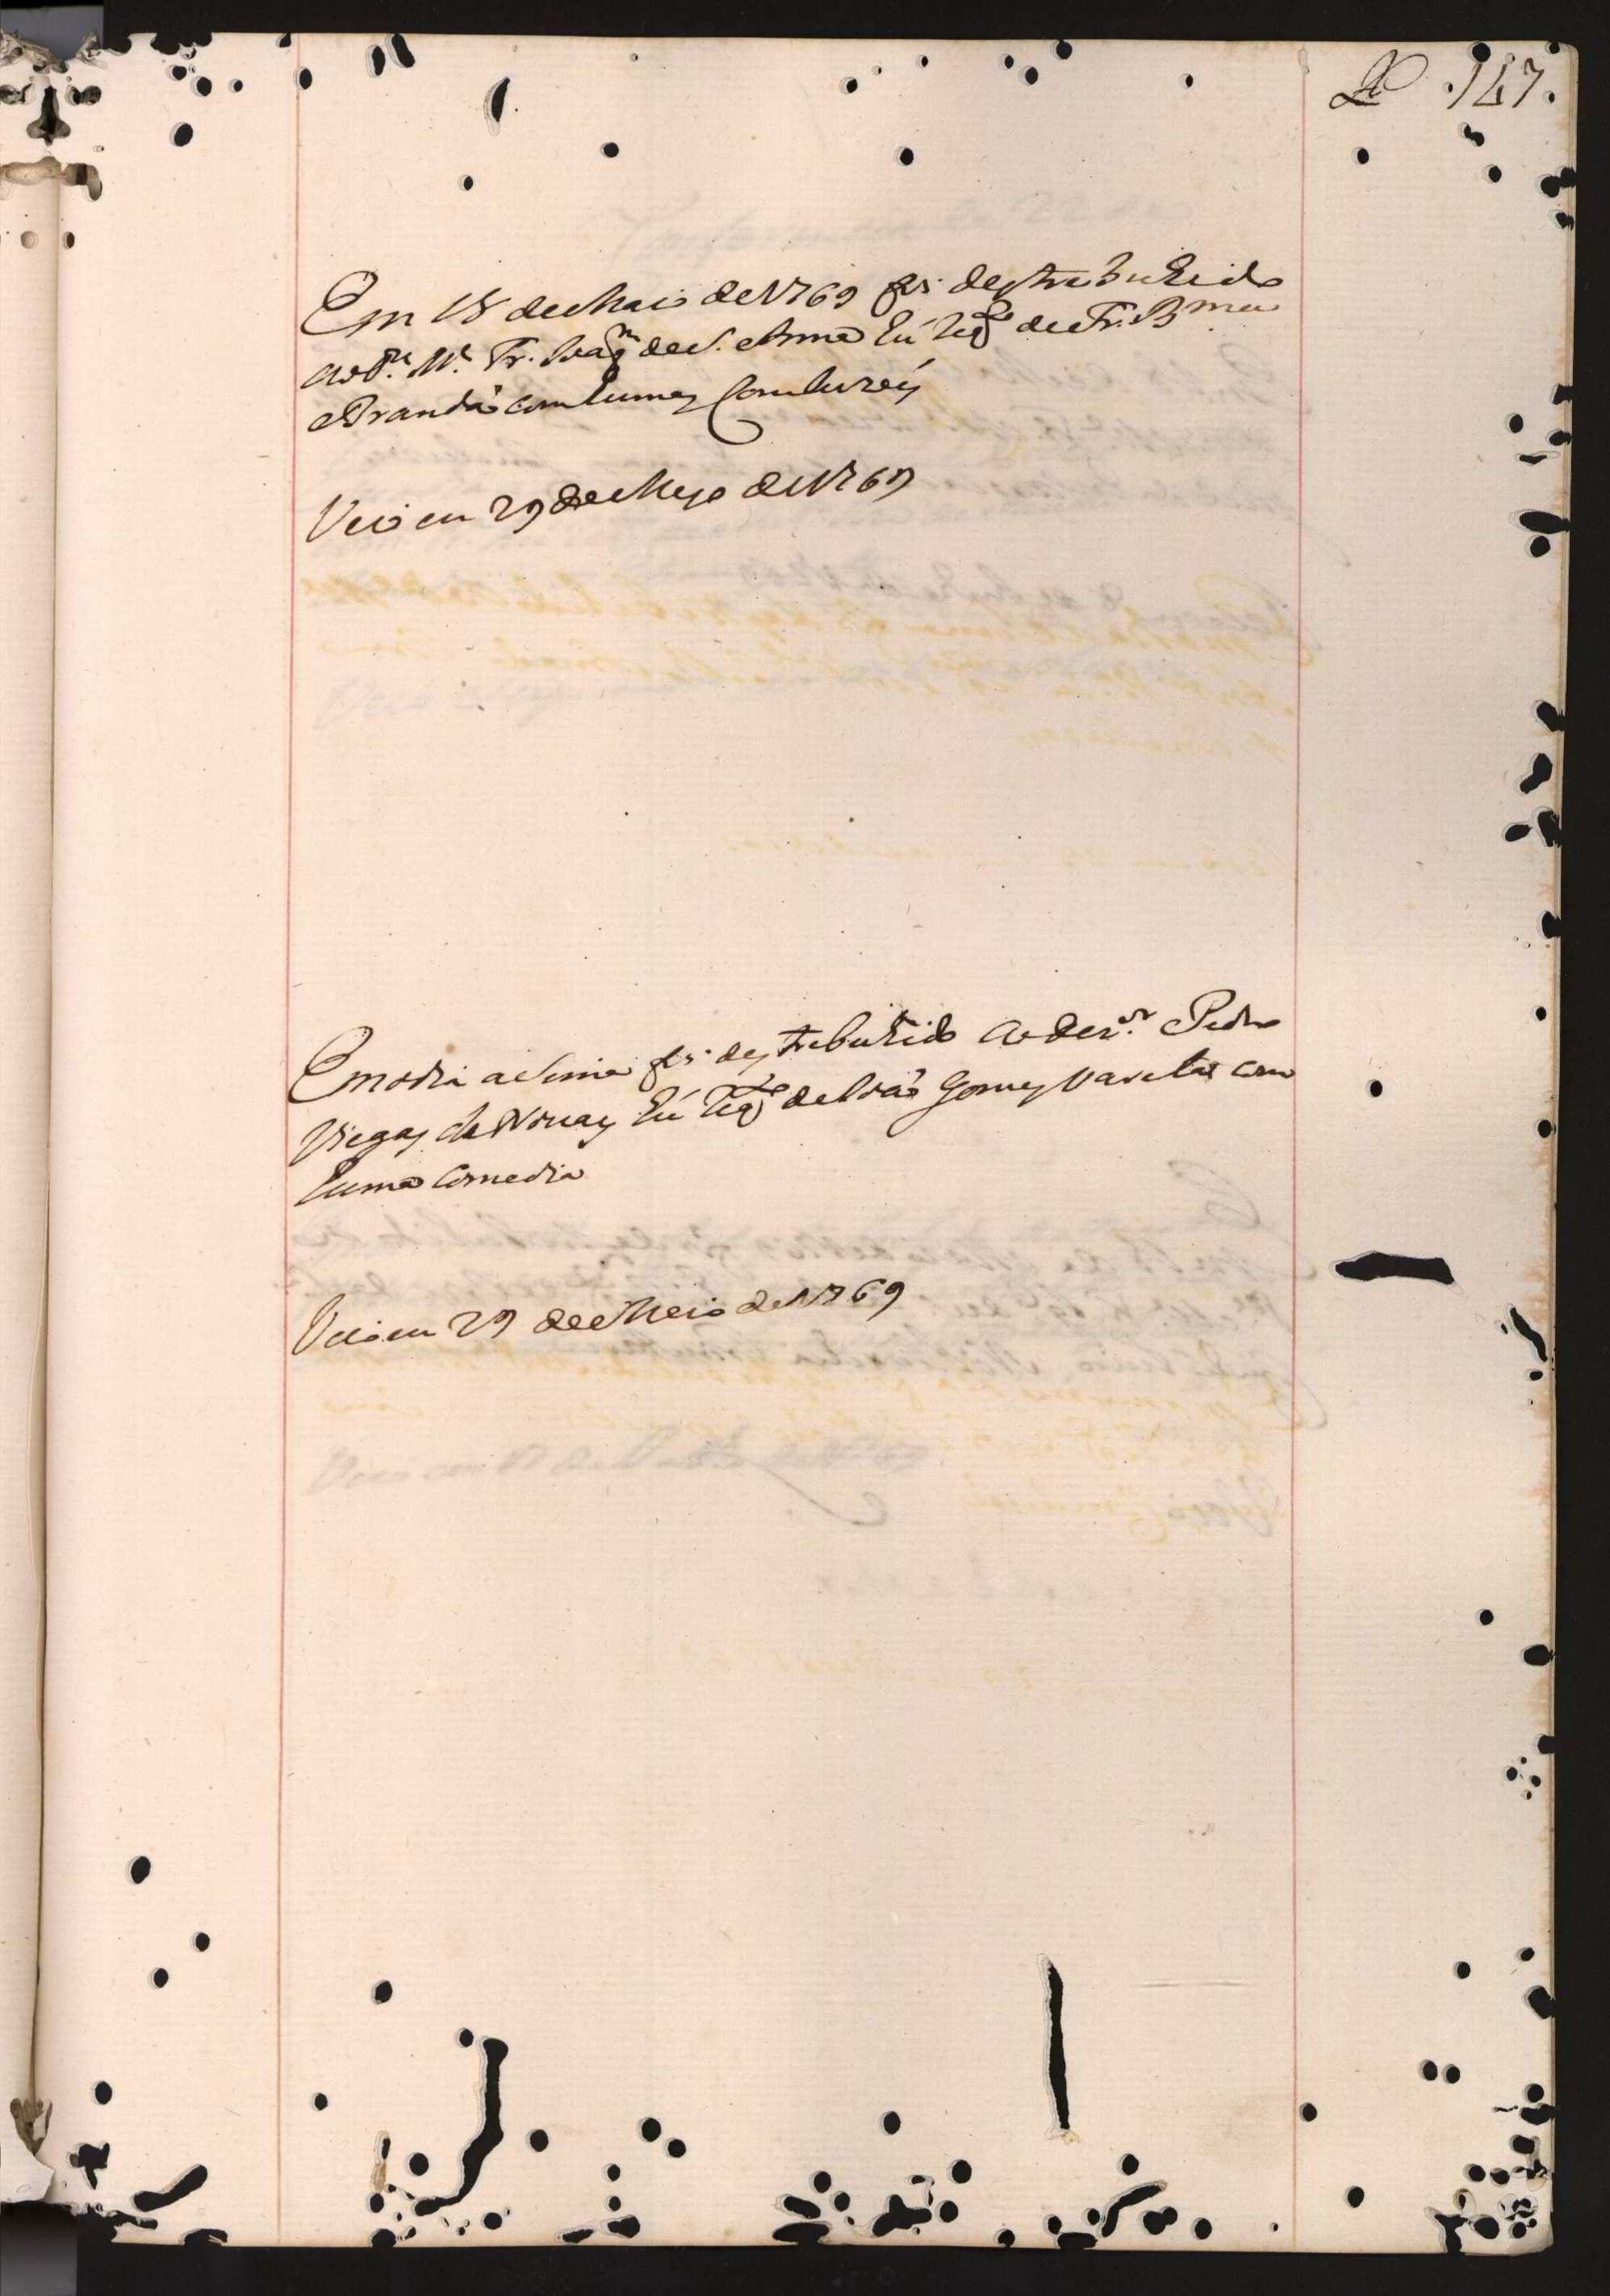 147.
Em 18 de Maio de 1769 foi destribuhido
ao P.e M.e Fr. Joaq.m de S. Anna hú req.to de Fr. B.meu
Brandaõ com humas Concluzoēs
Veio em 29 de Mayo de 1769
Em o dia asima foi destribuhido ao Dez.or Pedro
Viegas de Novaes hú req.to de Joaõ Gomes Varella com
huma Comedia
Veio em 29 de Maio de 1769